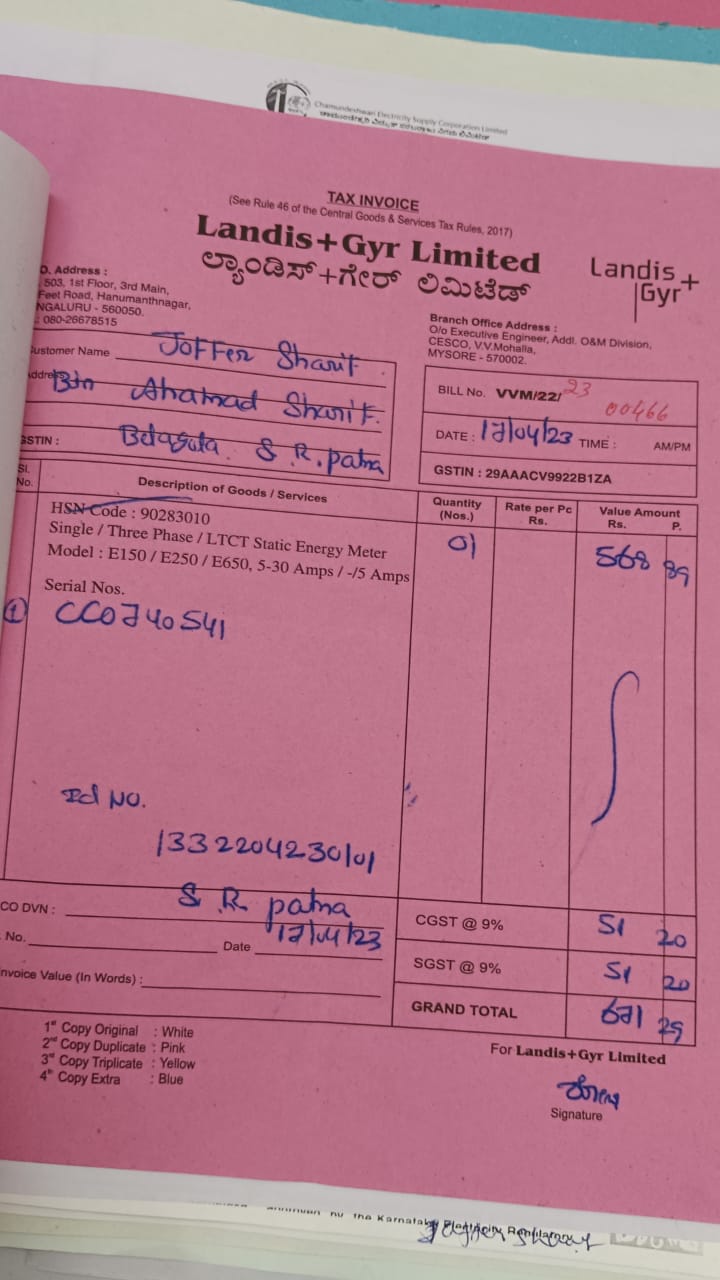 Chamundeshwari Electricity Supply Corporation Limited
ಚಾಮುಂಡೇಶ್ವರಿ ವಿದ್ಯುತ್ ಸರಬರಾಜು ನಿಗಮ ನಿಯಮಿತ
TAX INVOICE
(See Rule 46 of the Central Goods & Services Tax Rules, 2017)
Landis+Gyr Limited
ಲ್ಯಾಂಡಿಸ್+ಗೇರ್ ಲಿಮಿಟೆಡ್
Landis+
Gyr
O. Address :
503, 1st Floor, 3rd Main,
Feet Road, Hanumanthnagar,
NGALURU - 560050.
: 080-26678515
Branch Office Address :
O/o Executive Engineer, Addl. O&M Division,
CESCO, V.V.Mohalla,
MYSORE - 570002.
ustomer Name Joffer Sharif
ddres Bin Ahamad Sharif.
GSTIN : S.R.patna
BILL No. VVM/22/23 00466
DATE : 17/04/23 TIME : AM/PM
GSTIN : 29AAACV9922B1ZA
Sl. No. Description of Goods / Services Quantity (Nos.) Rate per Pc Rs. Value Amount Rs. P.
HSN Code : 90283010
Single / Three Phase / LTCT Static Energy Meter 01 568 89
Model : E150 / E250 / E650, 5-30 Amps / -/5 Amps
Serial Nos.
1 CC0740541
Id No.
1332204230101
CO DVN : S.R. patna
. No. Date 17/04/23
nvoice Value (In Words) :
CGST @ 9% 51 20
SGST @ 9% 51 20
GRAND TOTAL 671 29
1st Copy Original : White
2nd Copy Duplicate : Pink
3rd Copy Triplicate : Yellow
4th Copy Extra : Blue
For Landis+Gyr Limited
Signature
by the Karnataka Electricity Regulatory